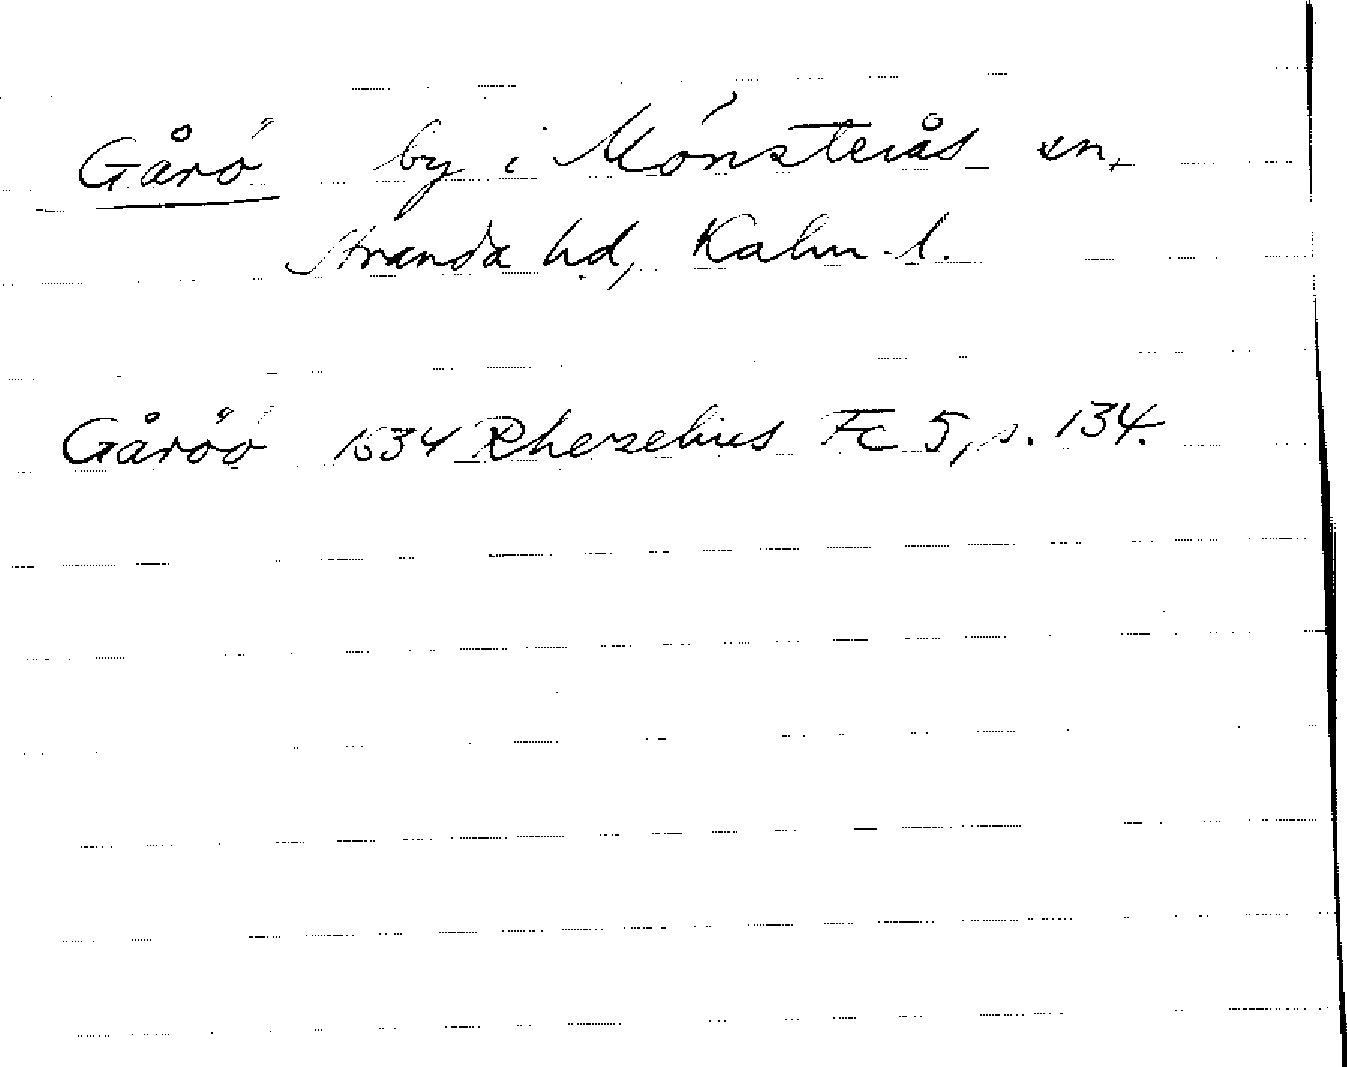 Gårö by i Mönsterås sn,
Stranda hd, Kalm. l.
Gåröö 1634 Rhezelius Fc 5, s. 134.